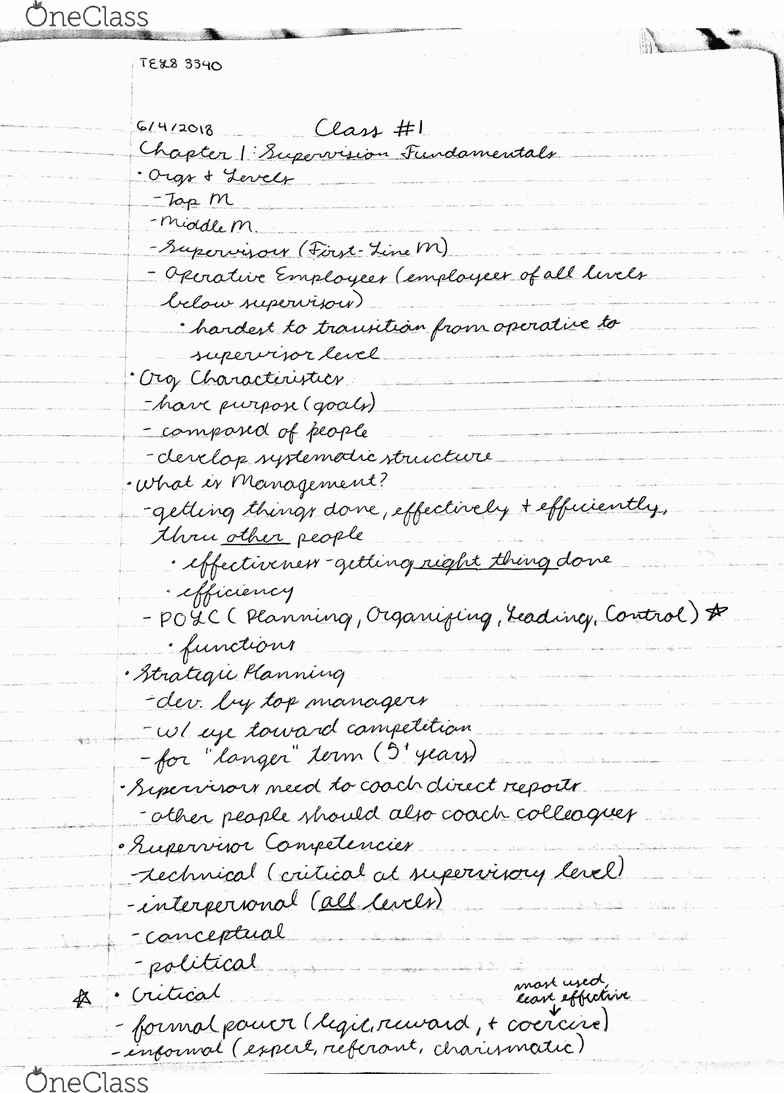 OneClass
TELS 3340
6/4/2018 Class #1
Chapter 1: Supervision Fundamentals
• Orgs + Levels
- Top M
- Middle M.
- Supervisors (First-Line M)
- Operative Employees (employees of all levels
below supervisor)
• hardest to transition from operative to
supervisor level
• Org Characteristics
- have purpose (goals)
- composed of people
- develop systematic structure
• What is Management?
- getting things done, effectively + efficiently,
thru other people
• effectiveness - getting right thing done
• efficiency
- POLC (Planning, Organizing, Leading, Control) ☆
• functions
• Strategic Planning
- dev. by top managers
- w/ eye toward competition
- for "longer" term (5+ years)
• Supervisors need to coach direct reports
- other people should also coach colleagues
• Supervisor Competencies
- technical (critical at supervisory level)
- interpersonal (all levels)
- conceptual
- political
☆ • Critical
most used,
least effective
↓
- formal power (legit, reward, + coercive)
- informal (expert, referant, charismatic)
OneClass